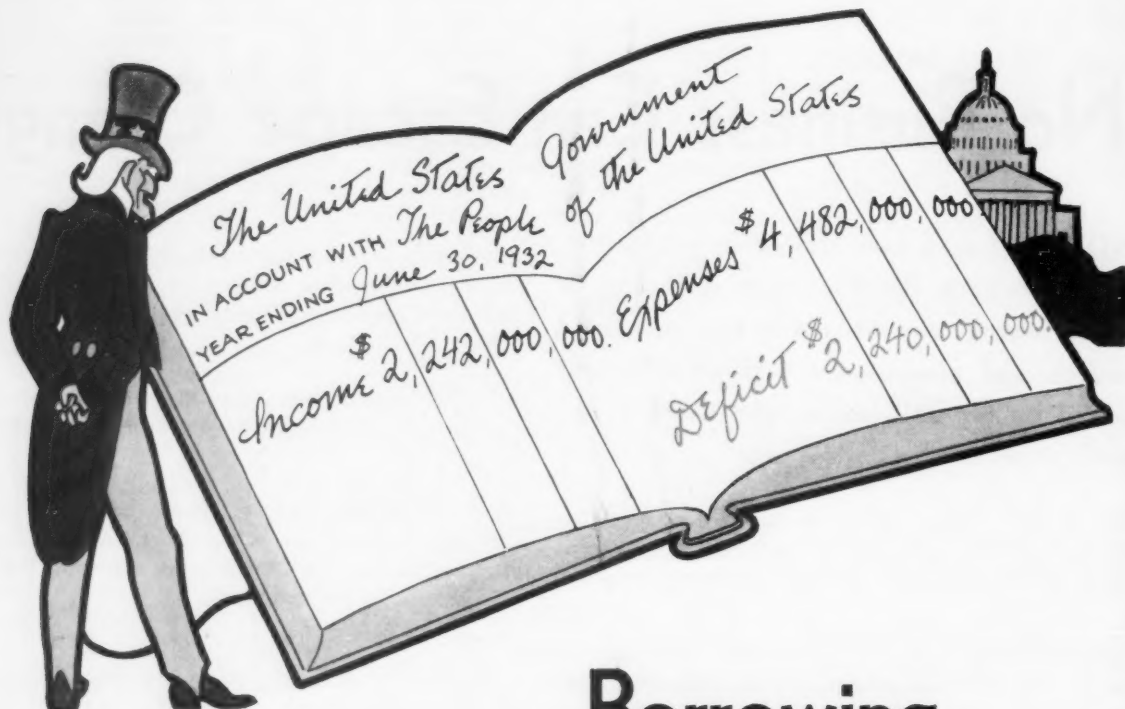 The United States Government
IN ACCOUNT WITH The People of the United States
YEAR ENDING June 30, 1932
Income $2,242,000,000. Expenses $4,482,000,000.
Deficit $2,240,000,000.
Borrowing